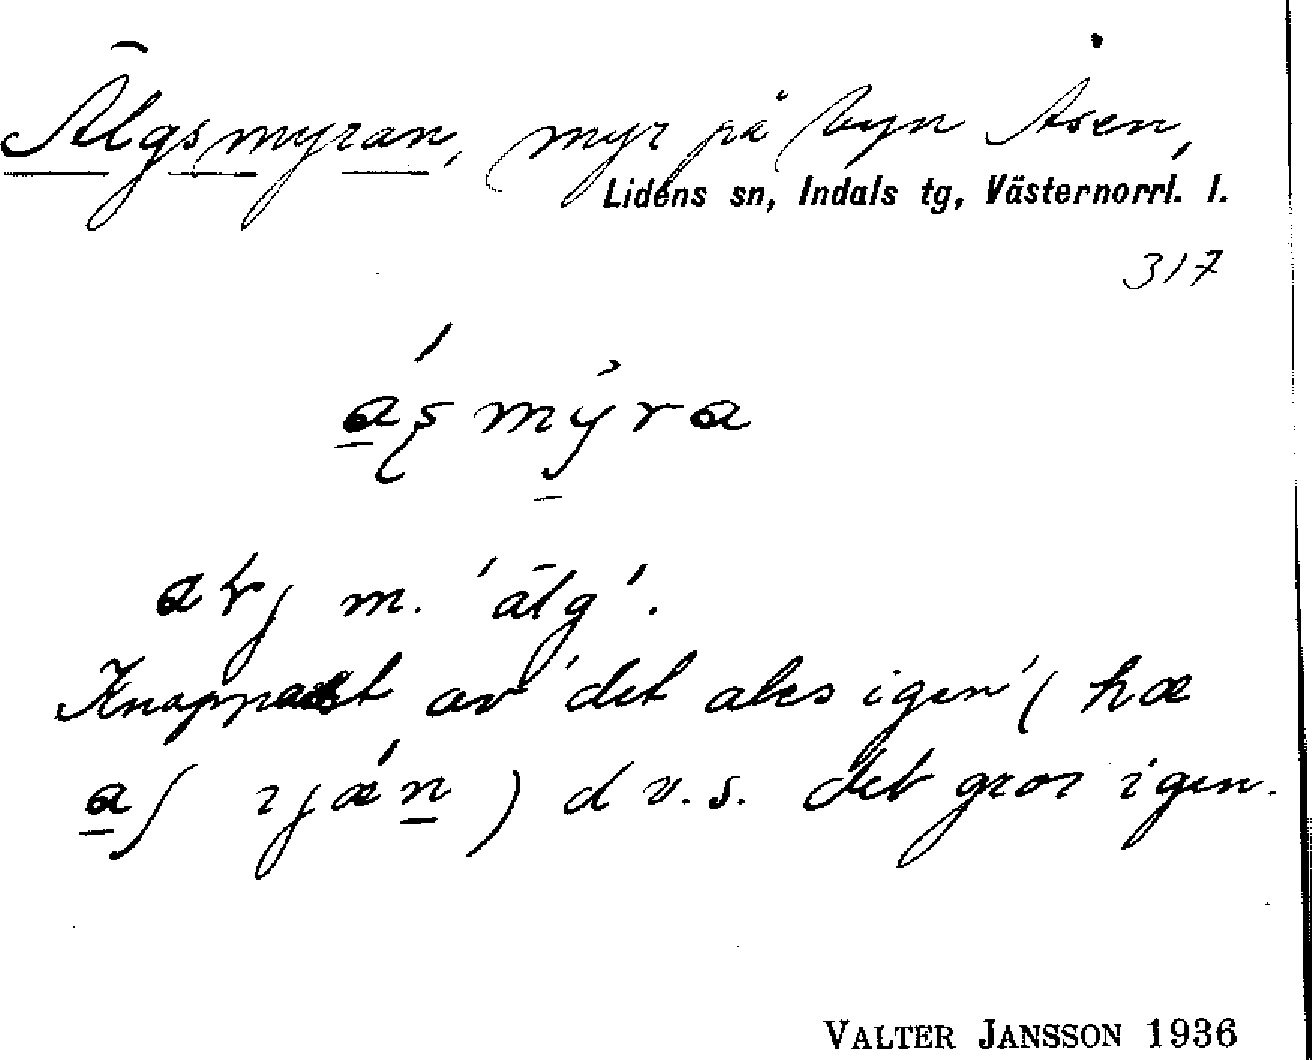 Älgsmyran, myr på byn Åsen,
Lidens sn, Indals tg, Västernorrl. l.
317
m. 'älg'.
Knappast av 'det ales igen' (hæ
) d v.s. det gror igen.
VALTER JANSSON 1936